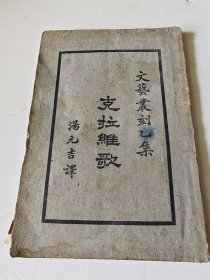 文藝叢刻乙集
克拉維歌
湯元吉譯